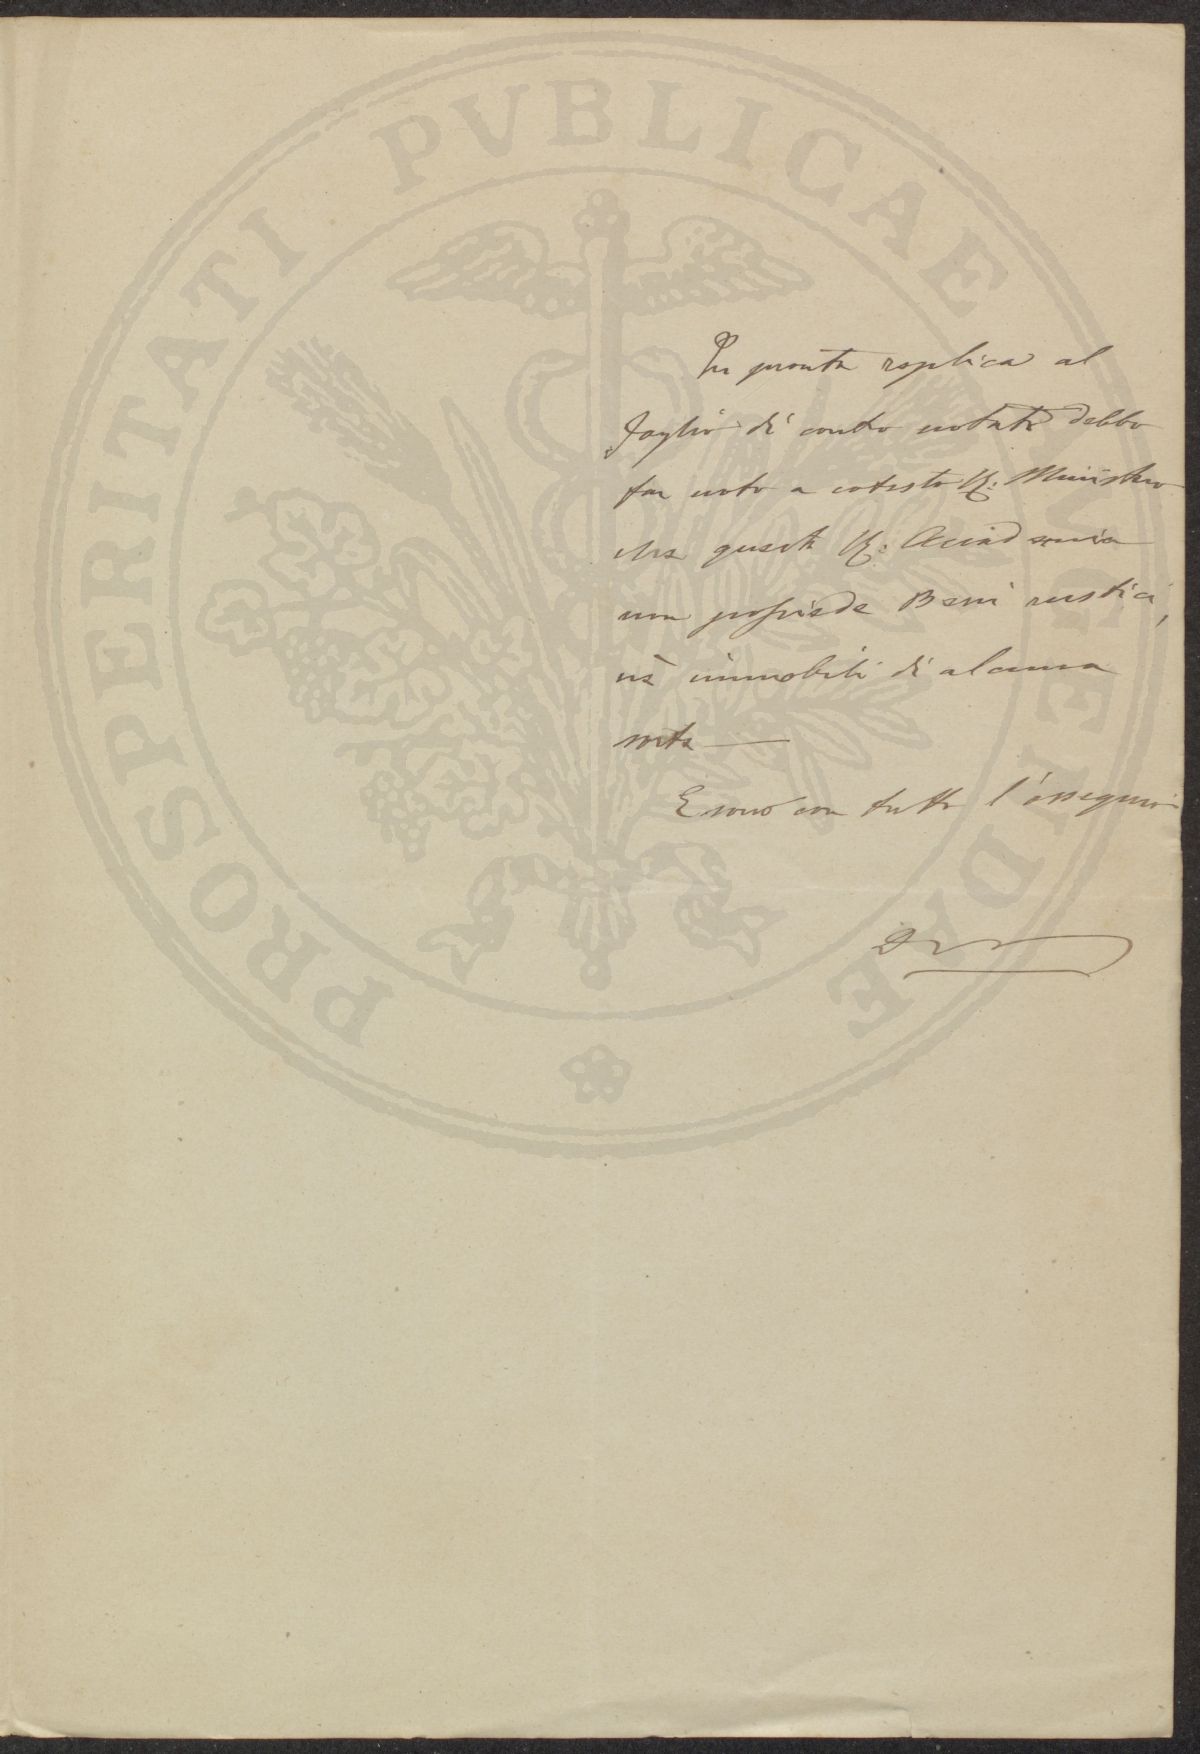 In pronta replica al
foglio di contro notato debbo
far noto a cotesto R: Ministero
che questa R: Accademia
non possiede Beni rustici,
nè immobili di alcuna
sorta —
E sono con tutto l'ossequio
PROSPERITATI PVBLICAE AVGENDAE